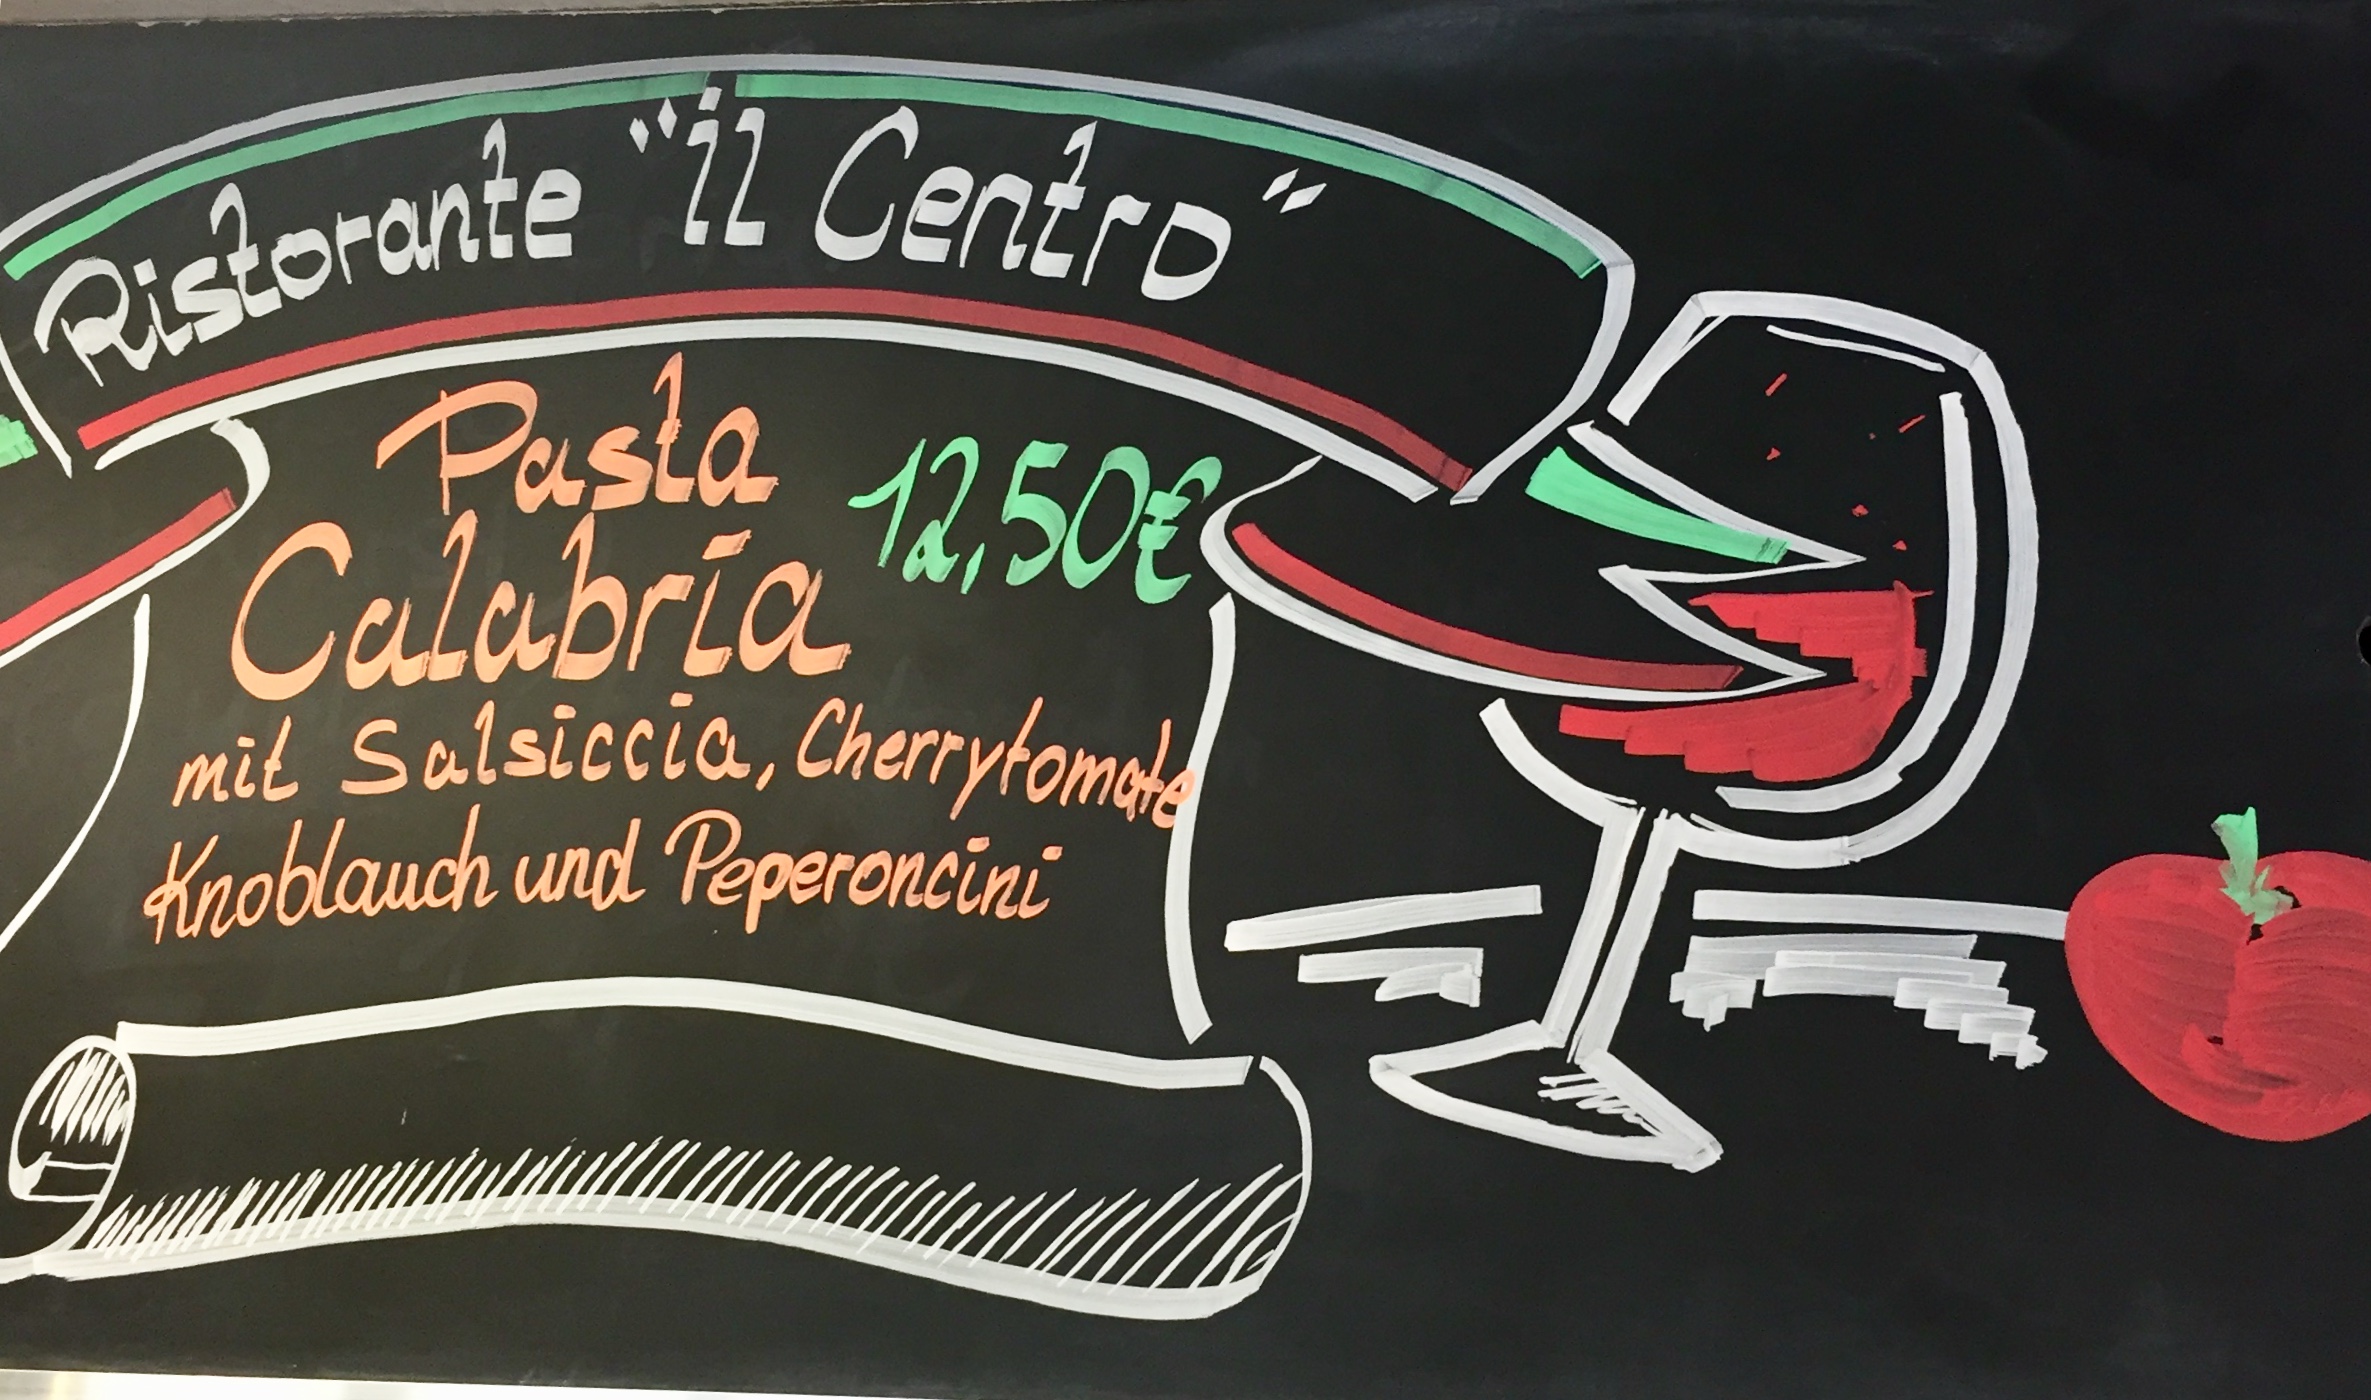 Ristorante "il Centro"
Pasta
12,50€
Calabria
mit Salsiccia, Cherrytomate
Knoblauch und Peperoncini